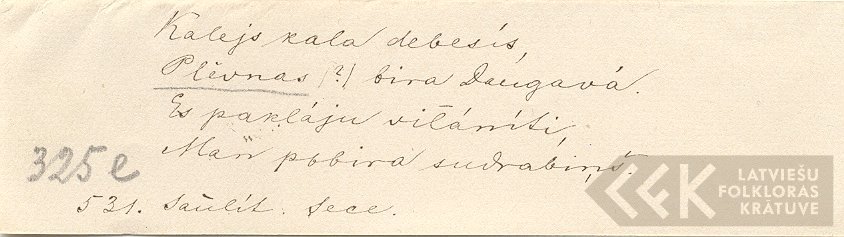 Kalejs kala debesīs,
Plēvnas (?) bira Daugavā.
Es paklāju vilānīti,
Man pbbira sudrabiņš.
325e
531. Saulīt. Sece.
LATVIEŠU
FOLKLORAS
KRĀTUVE